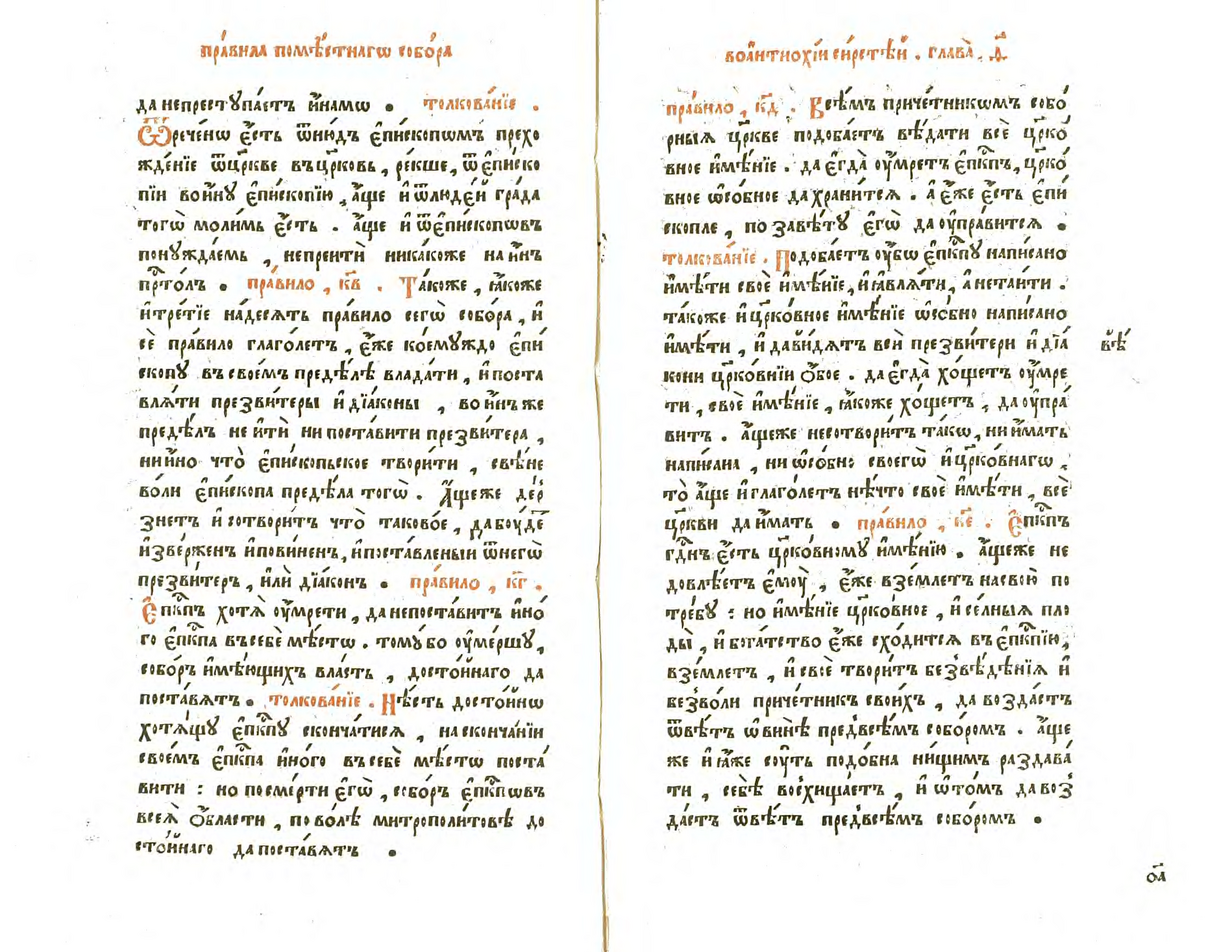 пра́вила помѣ́стнагѡ собо́ра
да непрестꙋпа́етъ и҆намѡ . толкова́нїе .
Ѿрече́нѡ є҆́сть ѿню́дъ є҆пи́скопѡмъ прехо
жде́нїе ѿцр҃кве въцр҃ковь, ре́кше, ѿ є҆пи́ско
пїи вои҆́нꙋ є҆писко́пїю, а҆́ще и҆ ѿлюде́й гра́да
тогѡ̀ моли́мь є҆́сть . а҆́ще и҆ ѿє҆пи́скоповъ
понꙋжда́емь , непреитѝ ника́коже на и҆́нъ
прⷭ҇то́лъ . пра́вило , кв҃ . Та́коже , ꙗ҆́коже
и҆ тре́тїе на́десѧть пра́вило сегѡ̀ собо́ра , и҆
сѐ пра́вило глаго́летъ , є҆́же коемꙋ́ждо є҆пи́
скопꙋ въ свое́мъ предѣ́лѣ влада́ти , и҆ поста
влѧ́ти презви́теры и҆ дїа́коны , во и҆́нъ же
предѣ́лъ не и҆тѝ ни поста́вити презви́тера ,
ни и҆́но что̀ є҆пи́скопьское твори́ти , свѣ́не
во́ли є҆пи́скопа предѣ́ла тогѡ̀ . А҆́щеже де́р
знетъ и҆ сотвори́тъ что̀ таково́е , да бꙋ́де
и҆зве́рженъ и҆ пови́ненъ, и҆ поста́вленыи ѿ негѡ̀
презви́теръ , и҆лѝ дїа́конъ . пра́вило , кг҃ .
Є҆пⷭ҇кпъ хотѧ̀ ᲂу҆мре́ти , да непоста́витъ и҆но́
го є҆пⷭ҇кпа въ себѐ мѣ́стѡ . томꙋ́ бо ᲂу҆ме́ршꙋ ,
собо́ръ и҆мѣ́ющихъ вла́сть , досто́йнаго да
поста́вѧтъ . толкова́нїе . Нѣ́сть досто́йнѡ
хотѧ́щꙋ є҆пⷭ҇кпꙋ сконча́тисѧ , на сконча́нїи
свое́мъ є҆пⷭ҇кпа и҆но́го въ себѐ мѣ́стѡ поста́
вити : но по сме́рти є҆гѡ̀ , собо́ръ є҆пⷭ҇кпѡвъ
всеѧ̀ ѻ҆́бласти , по во́лѣ митрополи́товѣ до
сто́йнаго да поста́вѧтъ .
воа҆нтиохі́и си́рстѣй . глава̀ . д҃ .
пра́вило , кд҃ . Всѣ́мъ приче́тникѡмъ собо́
рныѧ цр҃кве подоба́етъ вѣ́дати всѐ цр҃ко́
вное и҆мѣ́нїе . да є҆гда̀ ᲂу҆́мретъ є҆пⷭ҇кпъ, цр҃ко́
вное ѡ҆со́бное да храни́тсѧ . а є҆́же є҆́сть є҆пи́
скопле , по завѣ́тꙋ є҆гѡ̀ да ᲂу҆пра́витсѧ .
толкова́нїе . Подоба́етъ ᲂу҆́бѡ є҆пⷭ҇кпꙋ напи́сано
и҆мѣ́ти своѐ и҆мѣ́нїе, и҆ ꙗ҆влѧ́ти, а нетаи́ти .
та́коже и҆ цр҃ко́вное и҆мѣ́нїе ѡ҆со́бно напи́сано
и҆мѣ́ти , и҆ да ви́дѧтъ всѝ презви́тери и҆ дїа́
кони цр҃ко́внїи ѻ҆́бое . да є҆гда̀ хо́щетъ ᲂу҆мре́
ти , своѐ и҆мѣ́нїе , ꙗ҆́коже хо́щетъ , да ᲂу҆пра́
витъ . а҆́щеже несотвори́тъ та́кѡ , ни и҆́мать
напи́сана , ни ѡ҆со́бно своегѡ̀ и҆ цр҃ко́внагѡ ,
то̀ а҆́ще и҆ глаго́летъ нѣ́что своѐ и҆мѣ́ти , всѐ
цр҃кви да и҆́мать . пра́вило , ке҃ . Є҆пⷭ҇кпъ
гдⷭ҇нъ є҆́сть цр҃ко́вномꙋ и҆мѣ́нїю . а҆́щеже не
довлѣ́етъ є҆мꙋ̀ , є҆́же взе́млетъ на свою̀ по
тре́бꙋ : но и҆мѣ́нїе цр҃ко́вное , и҆ се́лныѧ пло
ды̀ , и҆ бога́тство є҆́же схо́дитсѧ въ є҆пⷭ҇кпїю,
взе́млетъ , и҆ своѐ твори́тъ без̾вѣ́дѣнїѧ и҆
без̾во́ли приче́тникъ свои́хъ , да возда́стъ
ѿвѣ́тъ ѡ҆ винѣ̀ предвсѣ́мъ собо́ромъ . а҆́ще
же и҆ ꙗ҆́же сꙋ́ть подо́бна ни́щимъ раздава́
ти , себѣ̀ восхища́етъ , и҆ ѡ҆ то́мъ да воз̾
да́стъ ѿвѣ́тъ предвсѣ́мъ собо́ромъ .
ѻ҃а